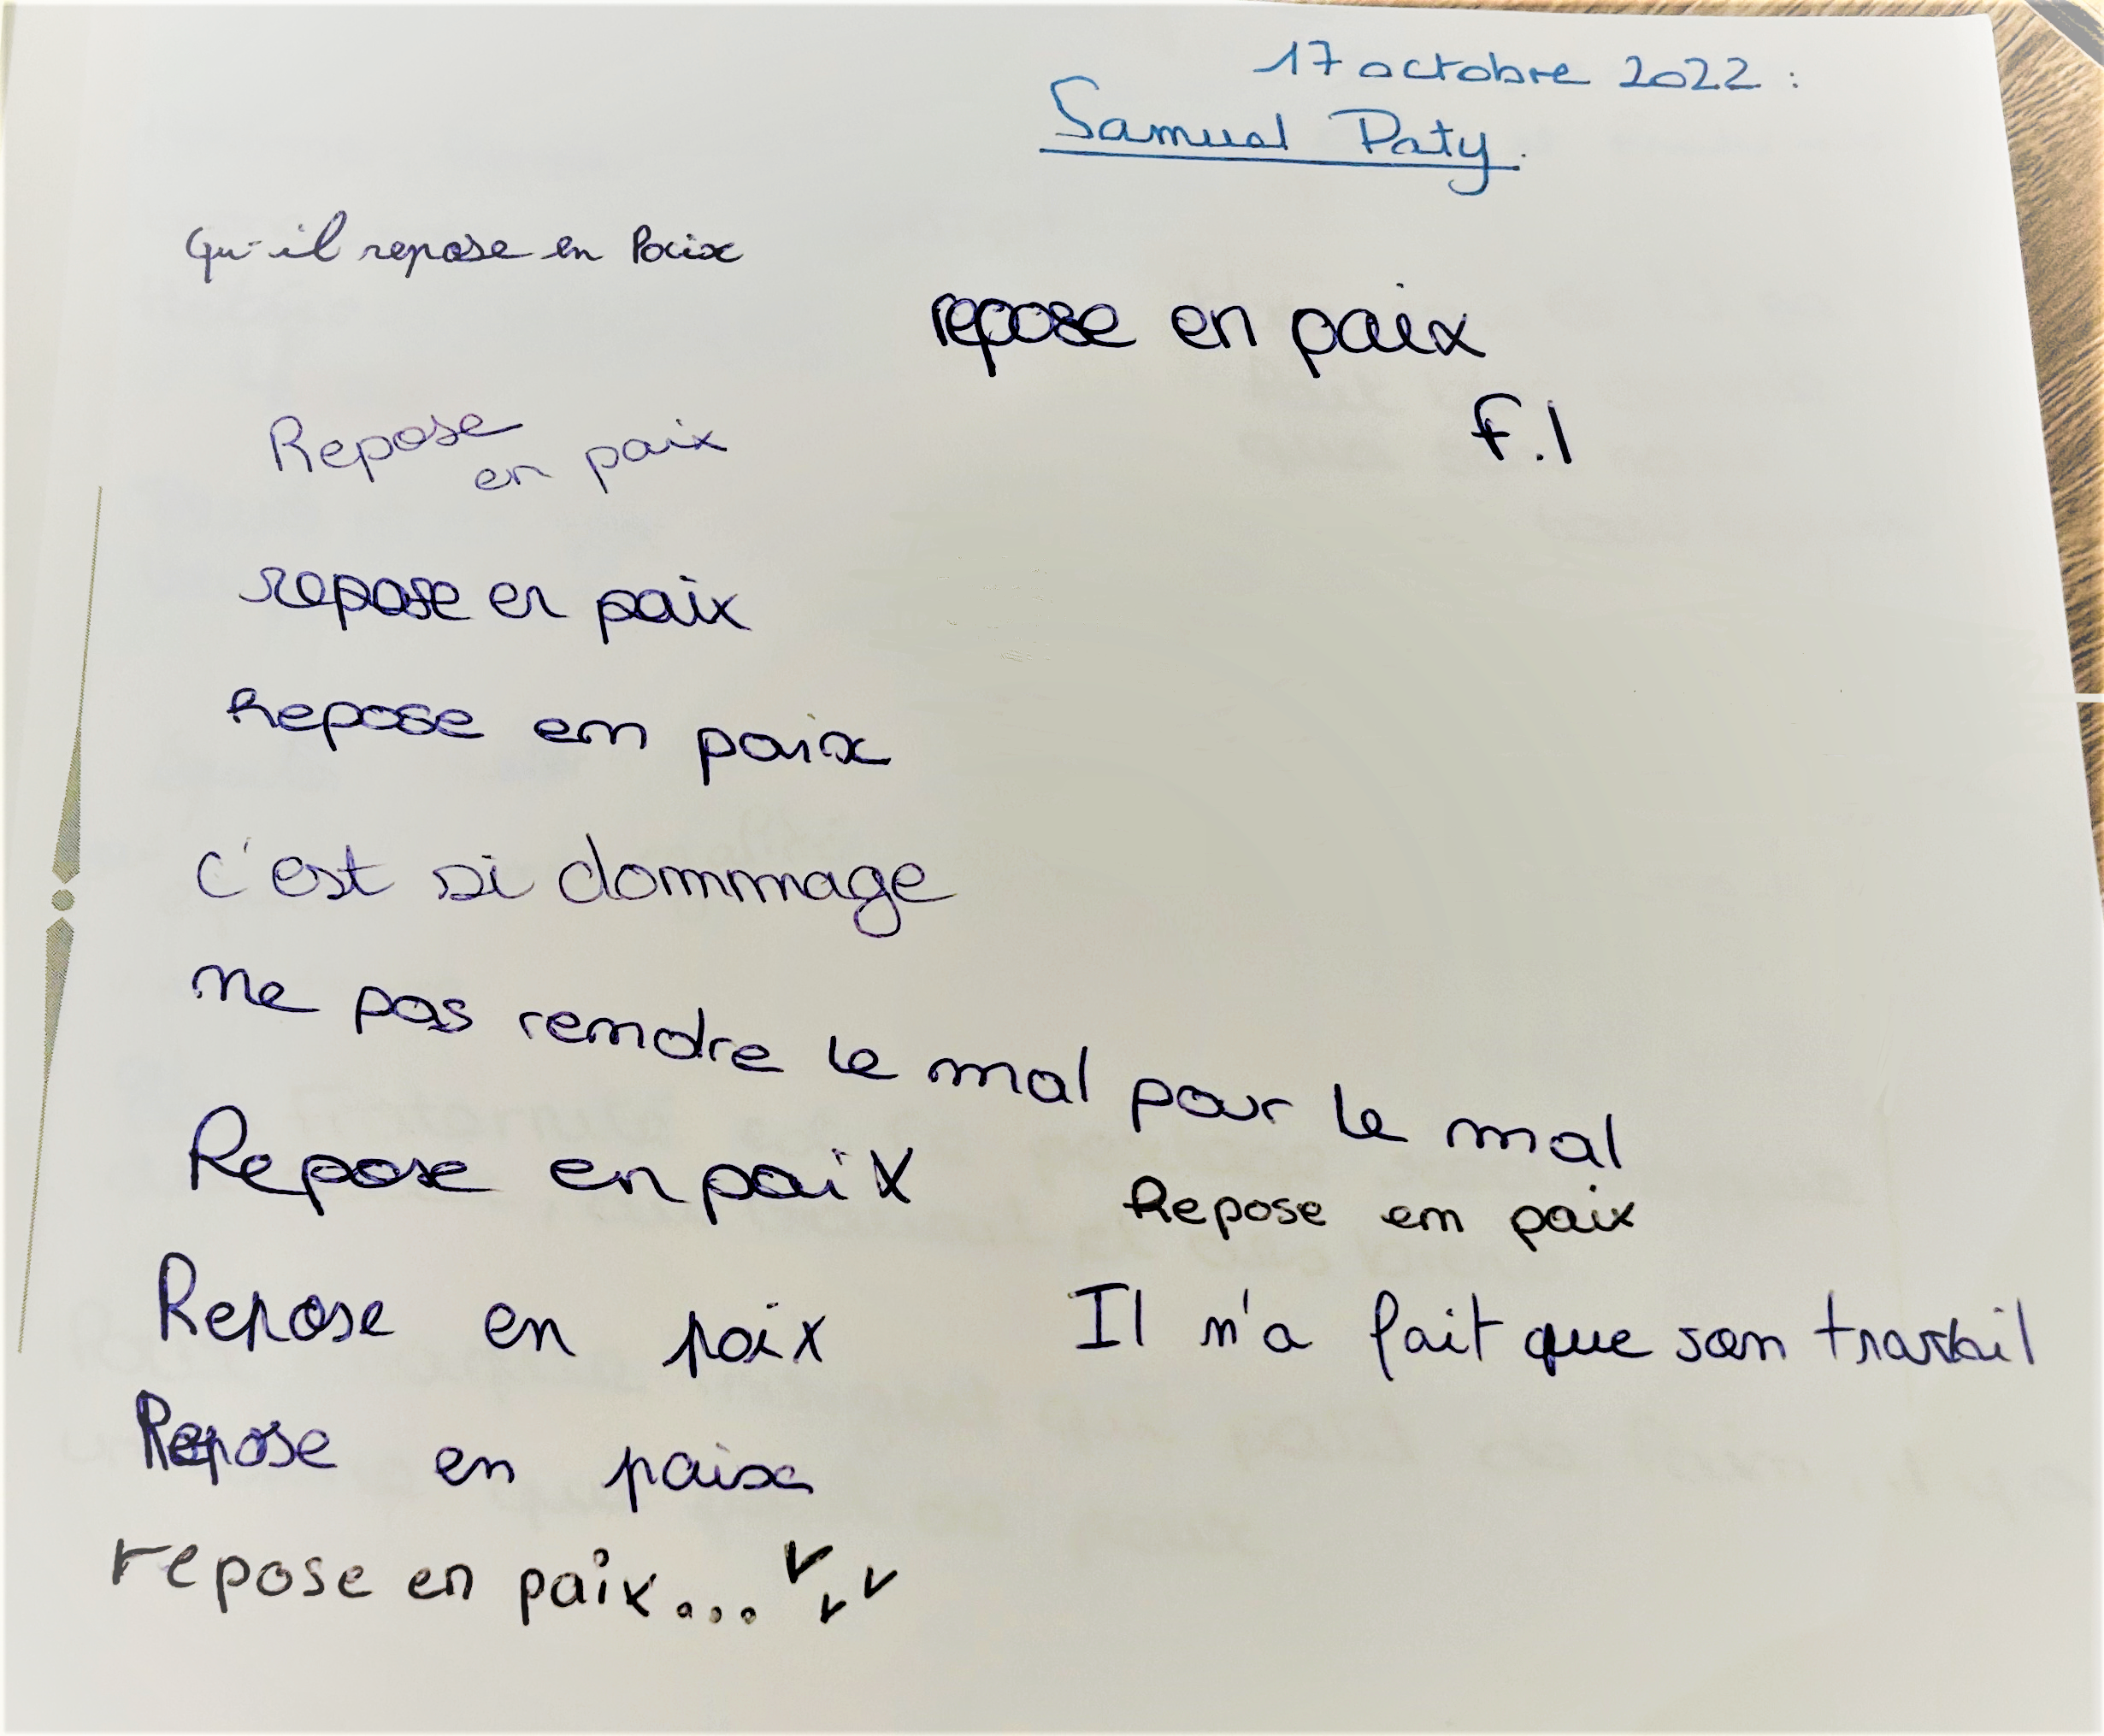 17 octobre 2022 :
Samual Paty.
Qu'il repose en Paix
repose en paix
F.I
Repose
en paix
repose en paix
Repose en paix
c'est si dommage
ne pas rendre le mal pour le mal
Repose en paix
Repose en paix
Repose en paix
Il n'a fait que son travail
Repose en paix
repose en paix...